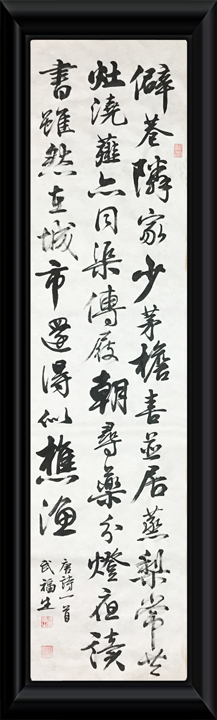 僻巷鄰家少茅檐喜並居蒸梨常共
灶澆薤亦同渠傳屐朝尋藥分燈夜讀
書雖然在城市還得似樵漁
唐詩一首
武福生